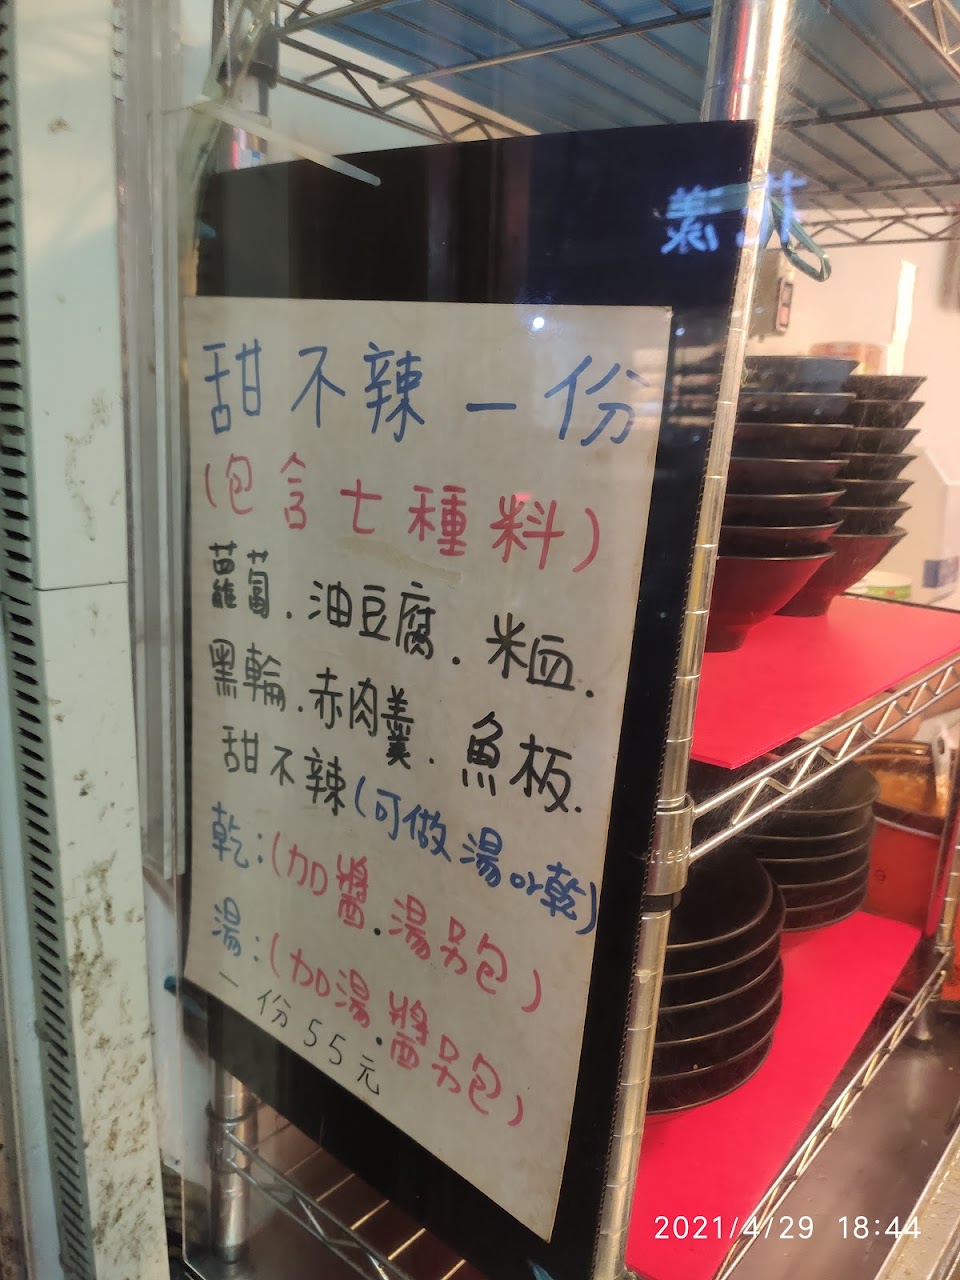 甜不辣一份
(包含七種料)
蘿蔔.油豆腐.米血.
黑輪.赤肉羹.魚板.
甜不辣(可做湯or乾)
乾:(加醬.湯另包)
湯:(加湯.醬另包)
一份55元
2021/4/29 18:44